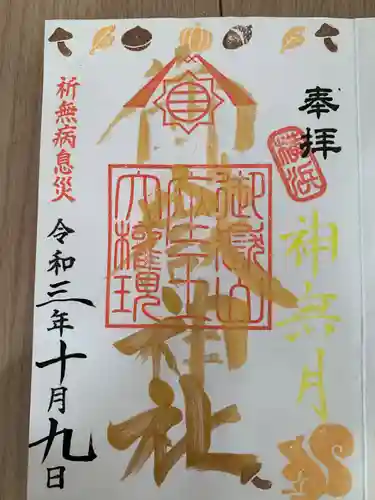 奉拝
横浜
神無月
御嶽山
大権現
御嶽神社
祈無病息災
令和三年十月九日